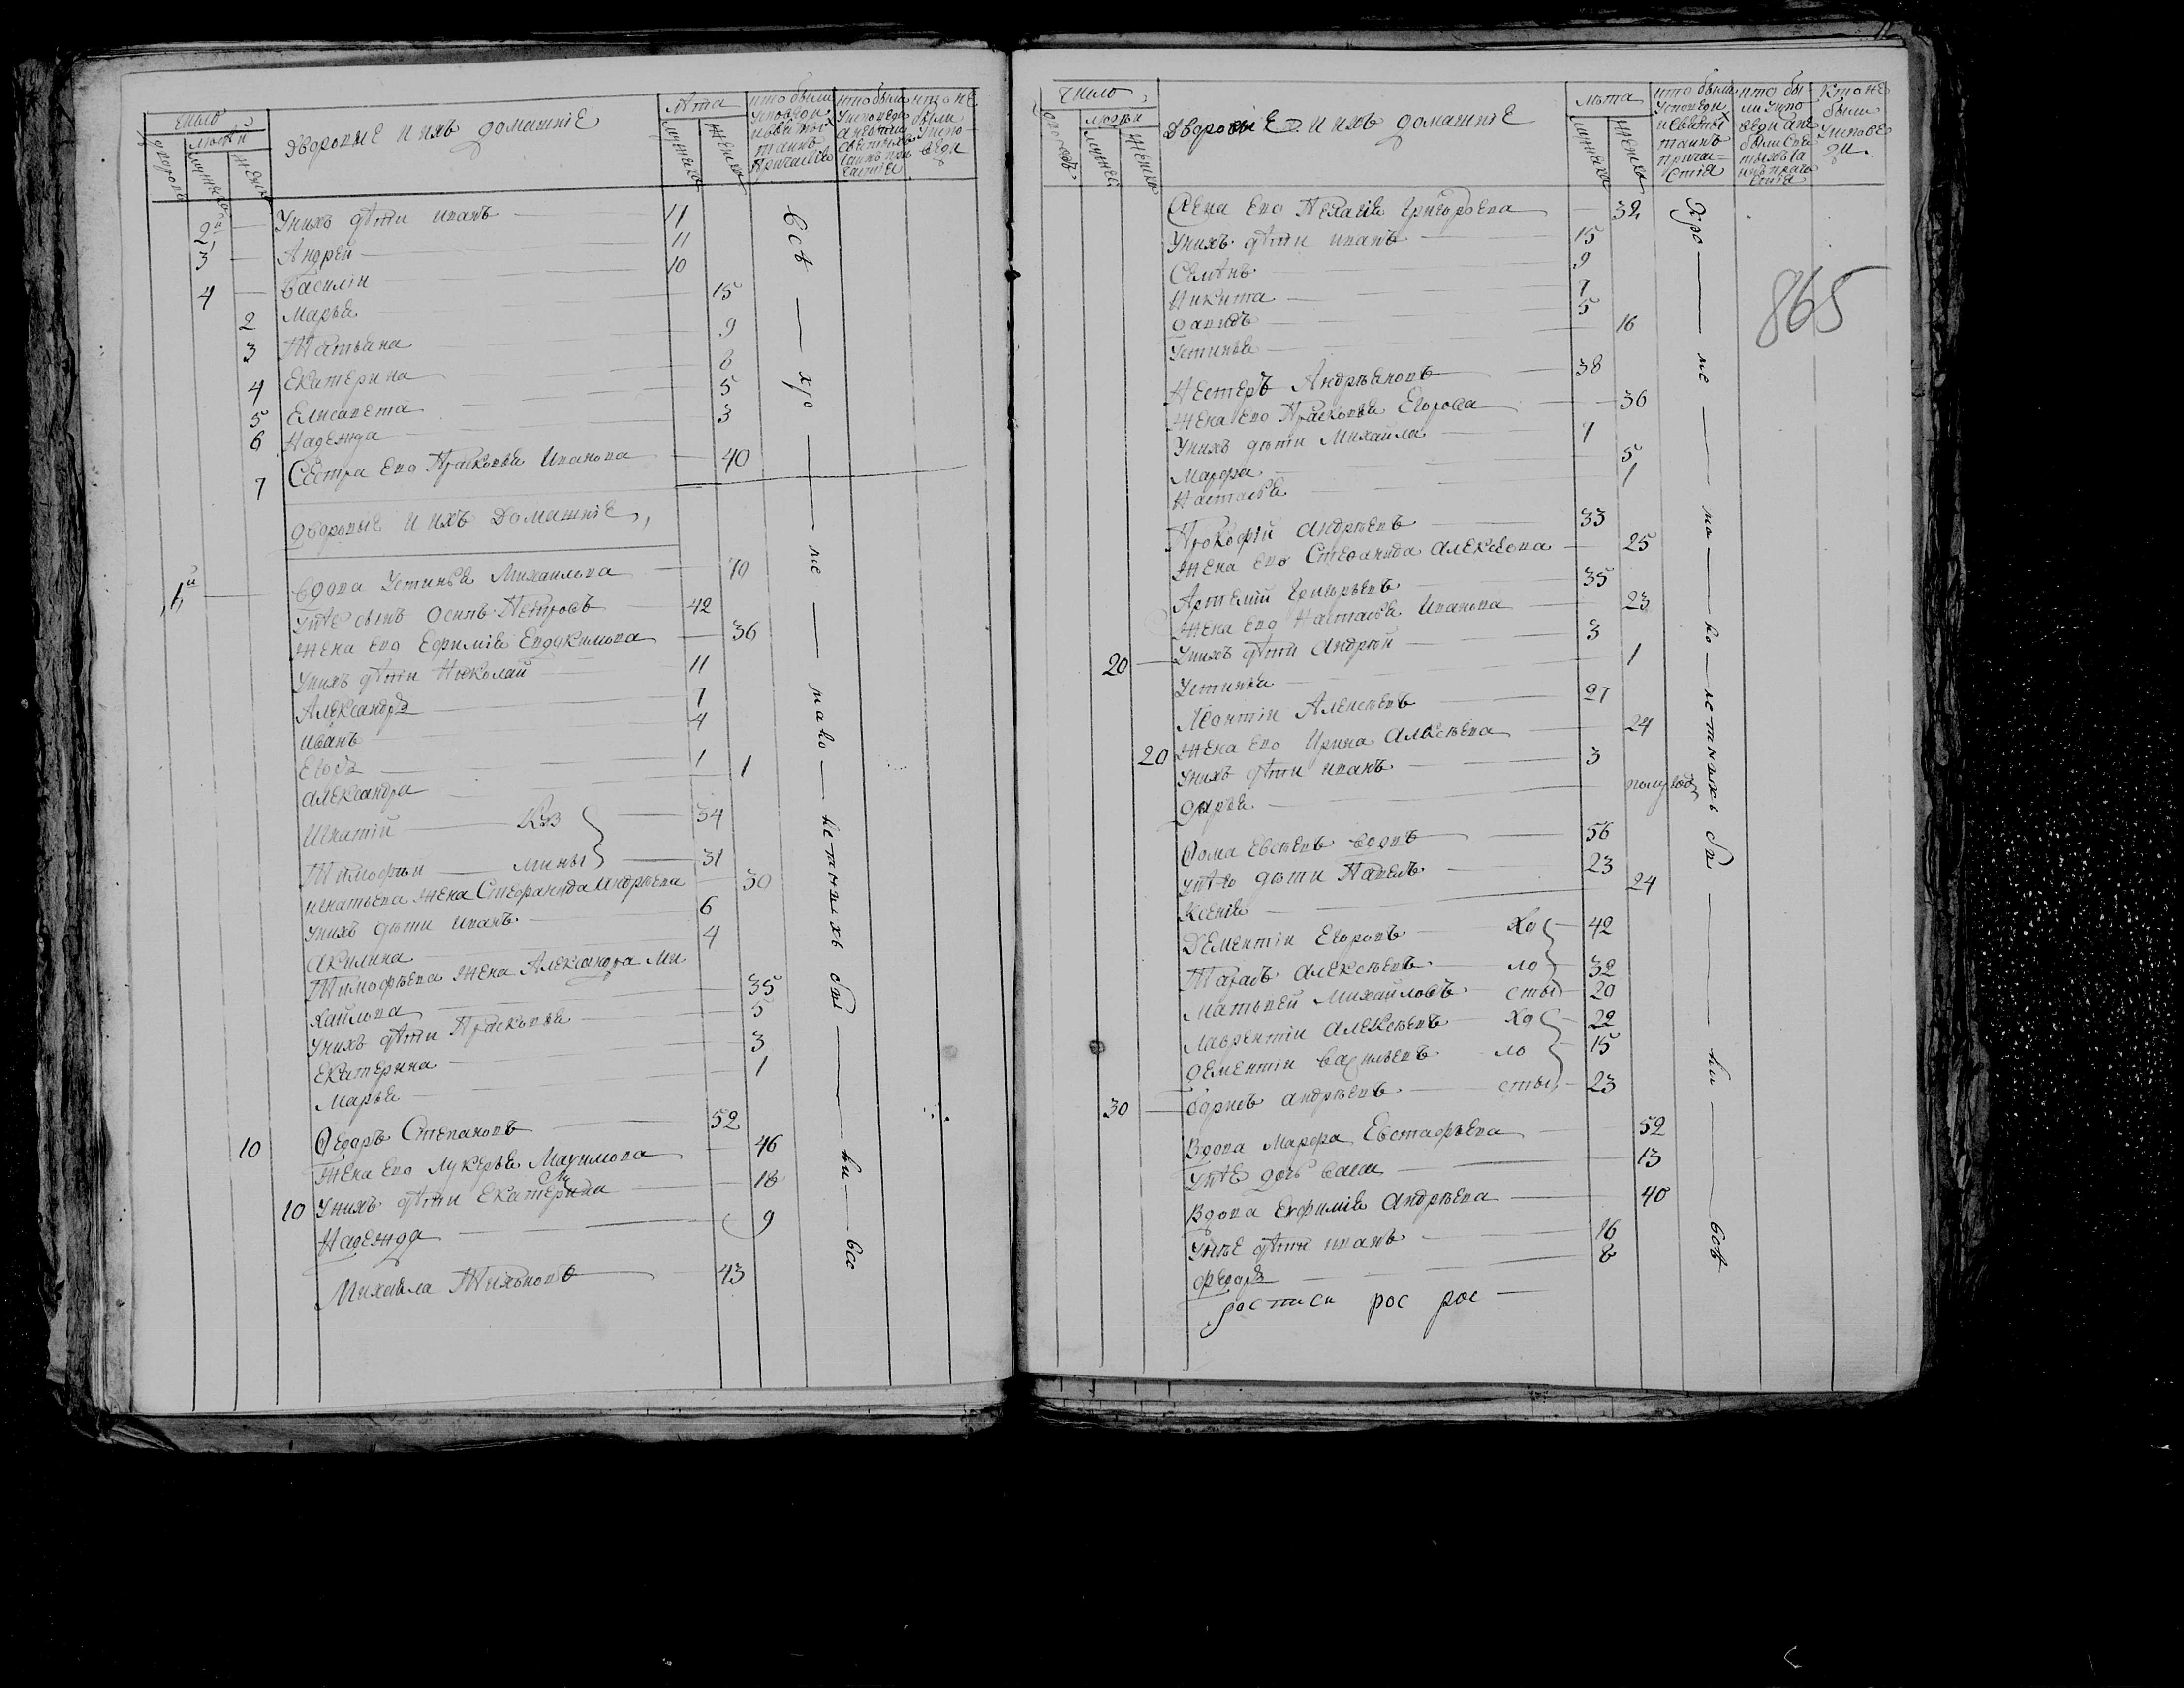 число
людей
дворовъ
мужеска
женска
Дворовые и ихъ домашніе
лѣта
мужеска
женска
кто были у исповеди и святыхъ таинъ причастія
кто не были у исповеди
2й У нихъ дѣти иванъ 11
3 Андрей 11
4 василій 10
2 Марья 15
3 Татьяна 9
4 Екатерина 8
5 Елисавета 5
6 Надежда 3
7 Сестра Его Прасковья Иванова 40
дворовые и ихъ домашніе
1й вдова Устинья Михаилова 70
у нѣе сынъ Осипъ Петровъ 42
жена Его Ефимія Евдокимова 36
У нихъ дѣти Николай 11
Александръ 7
иванъ 4
Егоръ 1
александра 1
игнатій 34
Тимофѣи 31
игнатьева жена Стефанида Андрѣева 30
у нихъ дѣти иванъ 6
акилина 4
Тимофѣева жена Александра Ми
хайлова 35
у нихъ дѣти Прасковья 5
Екатерина 3
Марья 1
10 Ѳедоръ Степановъ 52
жена Его Лукерья Маѯимова 46
10 У нихъ дѣти Екатерина 18
Надежда 9
Михайла Тихоновъ 43
всѣ хро ме
ки все
число
людей
мужеска
женска
Дворовые и ихъ домашніе
лѣта
мужеска
женска
кто были у исповеди и святыхъ таинъ причастія
кто не были у исповеди
865
Жена Его Пелагія Григорьева 32
У нихъ дѣти иванъ 15
Семѣнъ 9
Никита 7
давидъ 5
Устинья 16
Нестеръ Андрѣяновъ 38
жена Его Прасковья Егорова 36
У нихъ дѣти Михайла 7
Марфа 5
Настасья 1
Прокофій андрѣевъ 33
жена Его Стефанида алексѣева 25
Артемій Григорьевъ 35
жена Его Настасья Иванова 23
20 У нихъ дѣти андрѣй 3
Устинья 1
Леонтіи Алексѣевъ 27
20 жена Его Ирина Алексѣева 24
У нихъ дѣти иванъ 3
дарья полугода
Ѳома Евсѣевъ вдовъ 56
у нѣго дѣти Павелъ 23
Ксенія 24
Дементіи Егоровъ хо 42
Тарасъ алексѣевъ ло 32
Матвѣй Михайловъ сты 20
Лаврентіи алексѣевъ хо 22
дементіи васильевъ ло 15
30 борисъ андрѣевъ сты 23
Вдова Марфа Евстафьева 52
у нѣе дочь васса 13
Вдова Ефимія андрѣева 40
У нѣе дѣти иванъ 16
федоръ 8
росписи рос рос
хро ме ма ло летныхъ
ки всѣ